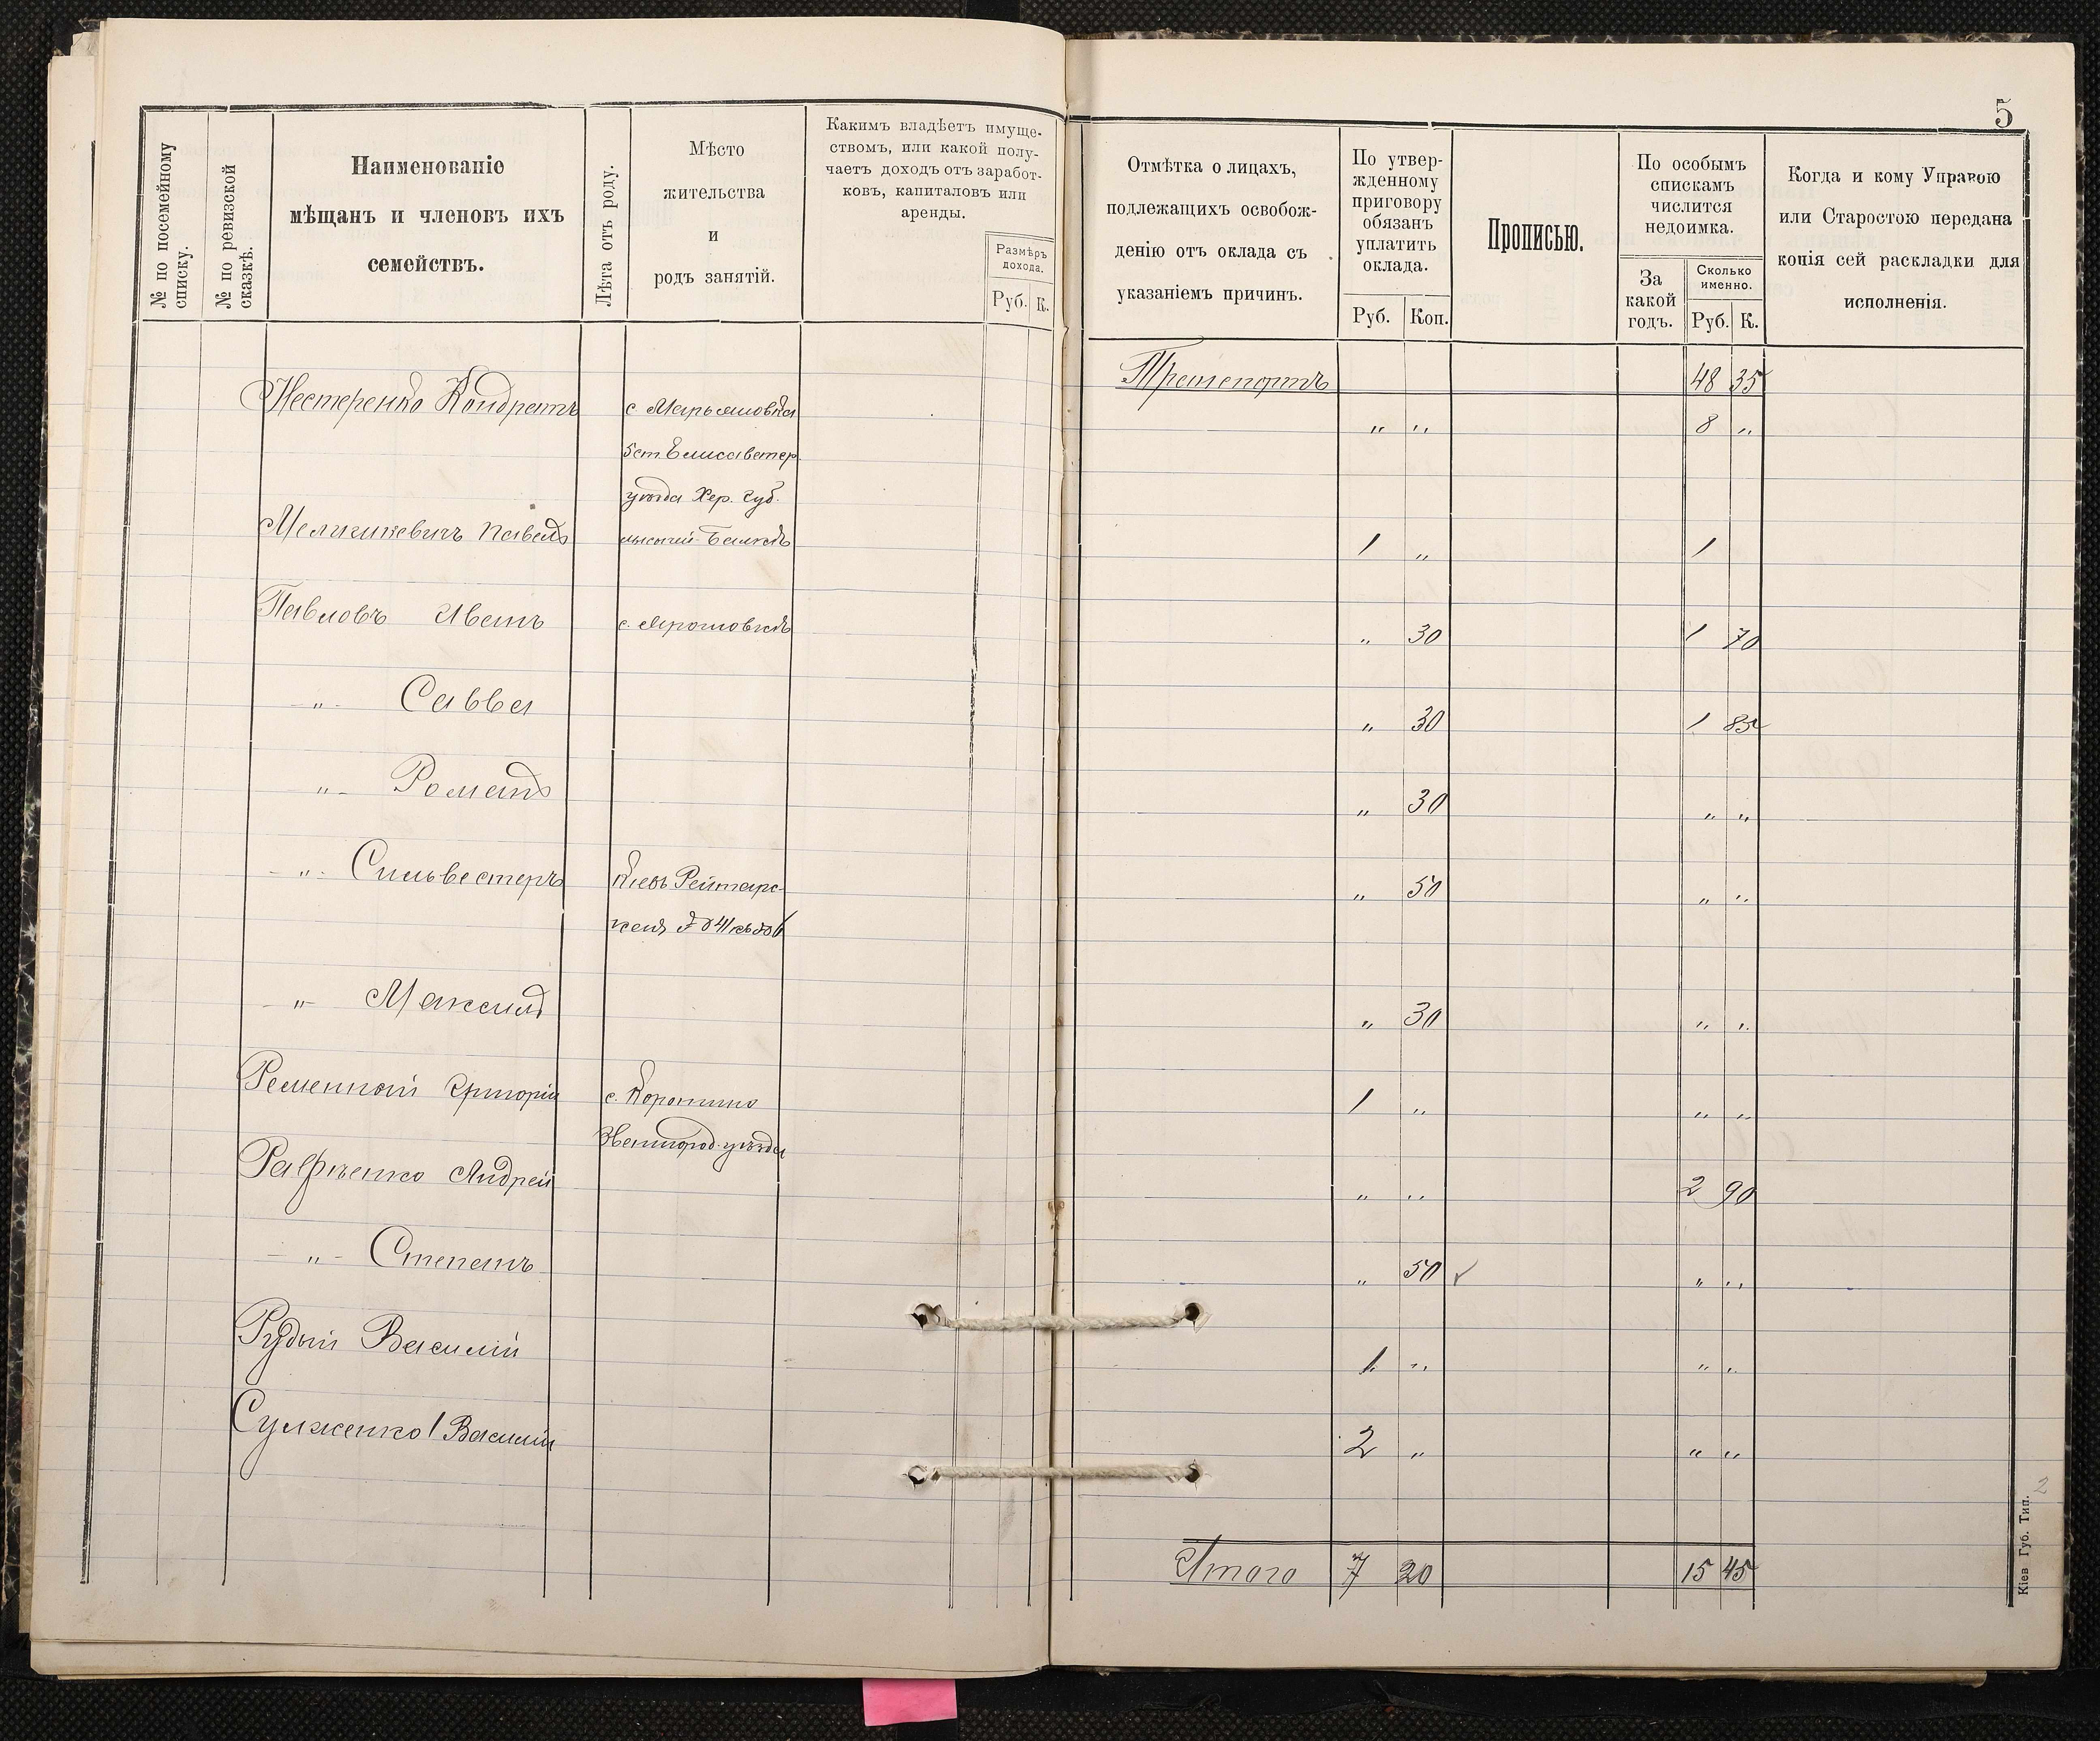 5
№ по посемейному списку.
№ по ревизской сказкѣ.
Наименованіе
мѣщанъ и членовъ ихъ
семействъ.
Лѣта отъ роду.
Мѣсто
жительства
и
родъ занятій.
Какимъ владѣетъ имуще-
ствомъ, или какой полу-
чаетъ доходъ отъ заработ-
ковъ, капиталовъ или
аренды.
Размѣръ
дохода.
Руб. К.
Отмѣтка о лицахъ,
подлежащихъ освобож-
денію отъ оклада съ
указаніемъ причинъ.
По утвер-
жденному
приговору
обязанъ
уплатить
оклада.
Руб. Коп.
Прописью.
По особымъ
спискамъ
числится
недоимка.
За
какой
годъ.
Сколько
именно.
Руб. К.
Когда и кому Управою
или Старостою передана
копія сей раскладки для
исполненія.
Транспортъ 48 35
Нестеренко Кондратъ с. Марьяновка " " 8 "
5 ст. Елисаветгр.
уѣзда Хер. губ.
Павелъ 1 " 1
Павловъ Иванъ с. Ярошовка " 30 1 70
" Савва " 30 1 85
" Романъ " 30 " "
" Сильвестеръ Кіевъ Рейтарс- " 50 " "
кая
" Максимъ " 30 " "
Ременной Григорій с. 1 " " "
Звенигород. уѣзда
Радченко Андрей " " 2 90
" Степанъ " 50 " "
Рудый Василій 1 " " "
Сулженко Василій 2 " " "
Итого 7 20 15 45
Кіев Губ. Тип.
2